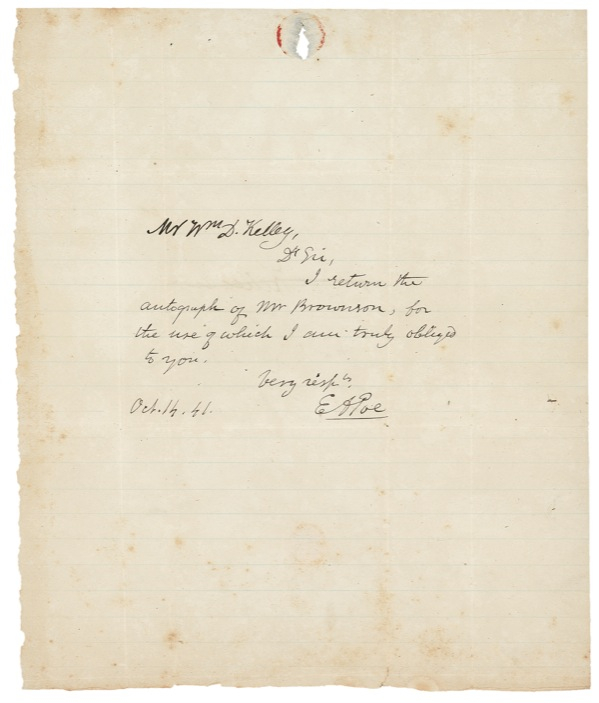 Mr Wm D. Kelley,
Dr Sir,
I return the
autograph of Mr Brownson, for
the use of which I am truly obliged
to you.
Very respy.
Oct. 14. 41. E A Poe